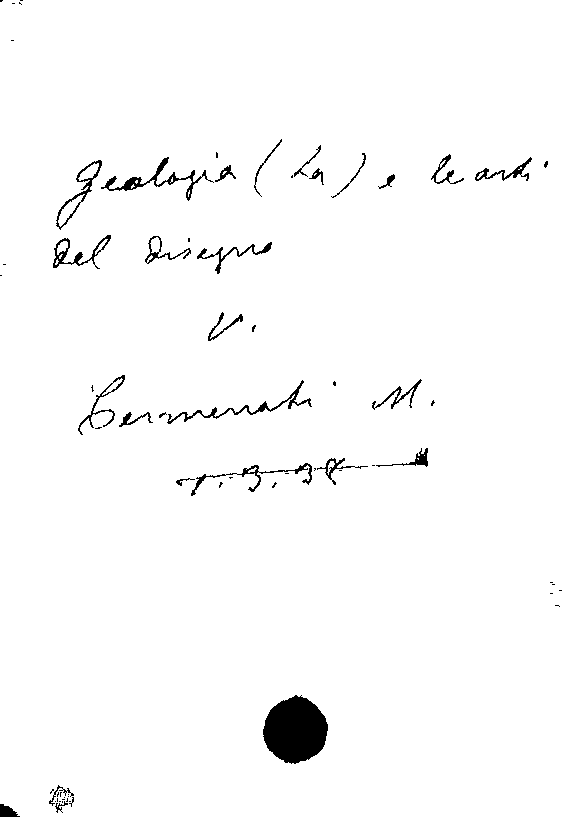 Geologia (La) e le arti
del disegno
V.
Cermenati M.
1.3.38